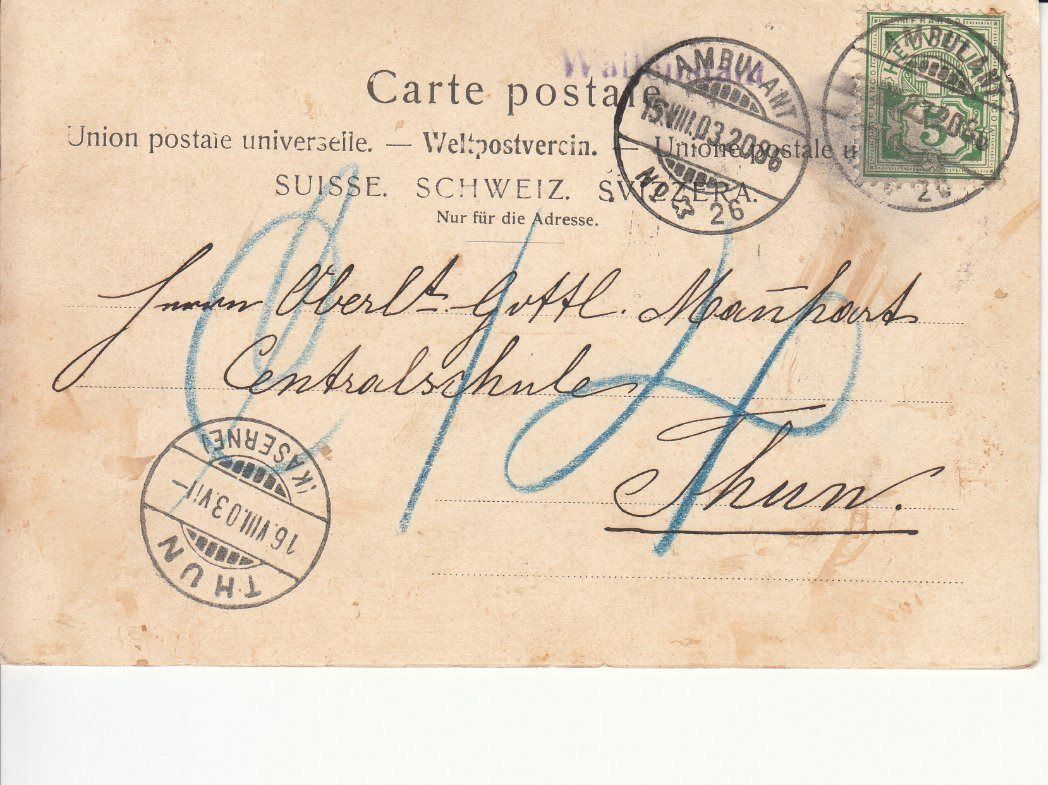 Carte postale
AMBULANT
15.VIII.03.2086
No 26
AMBULANT
5
Union postale universelle. — Weltpostverein. — Unione postale u
SUISSE. SCHWEIZ. SVIZZERA.
Nur für die Adresse.
Herrn Oberlt. Gottl. Maūhart
Centralschule
Thun.
(KASERNE)
16.VIII.03.VII–
THUN